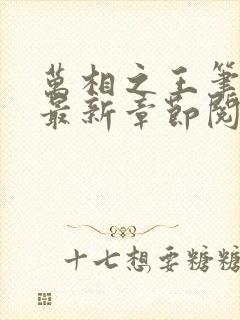 萬相之王筆
最新章節閱
十七想要糖糖